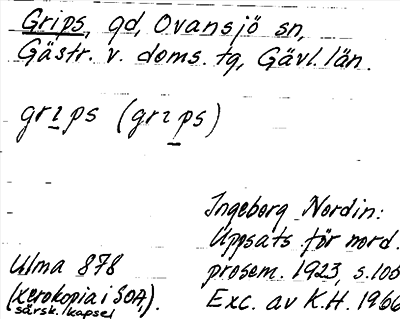 Grips, gd, Ovansjö sn,
Gästr. v. doms. tg, Gävl. län.
grɩps (grɩps)
Ingeborg Nordin:
Uppsats för nord.
prosem. 1923, s. 100
Exc. av K.H. 1966
Ulma 878
(xerokopia i SOA).
särsk. kapsel